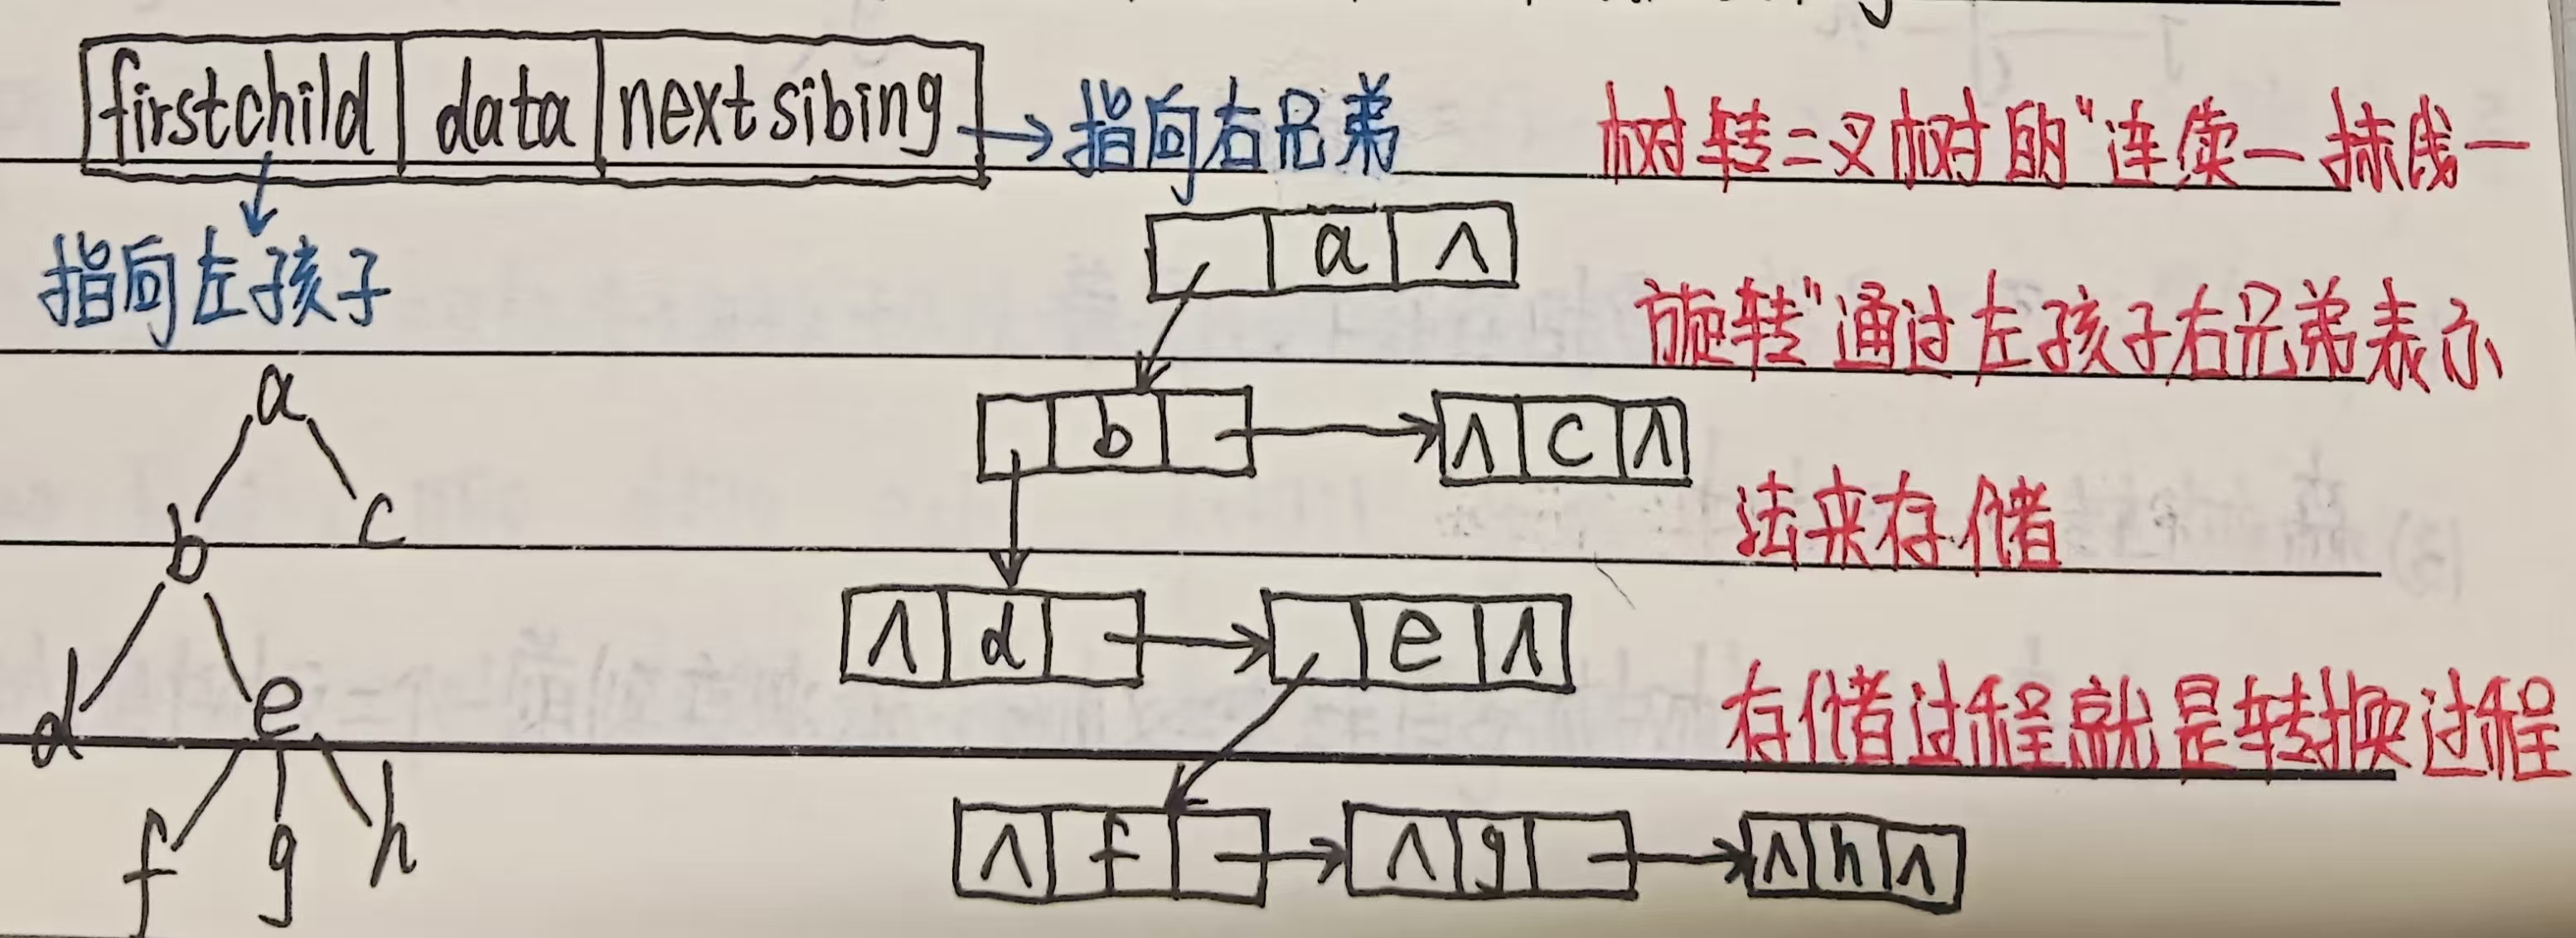 firstchild data nextsibing
指向右兄弟
指向左孩子
树转二叉树的"连续一抹线一
旋转"通过左孩子右兄弟表示
法来存储
存储过程就是转换过程
a
b c
d e
f g h
a ∧
b ∧ c ∧
∧ d e ∧
∧ f ∧ g ∧ h ∧